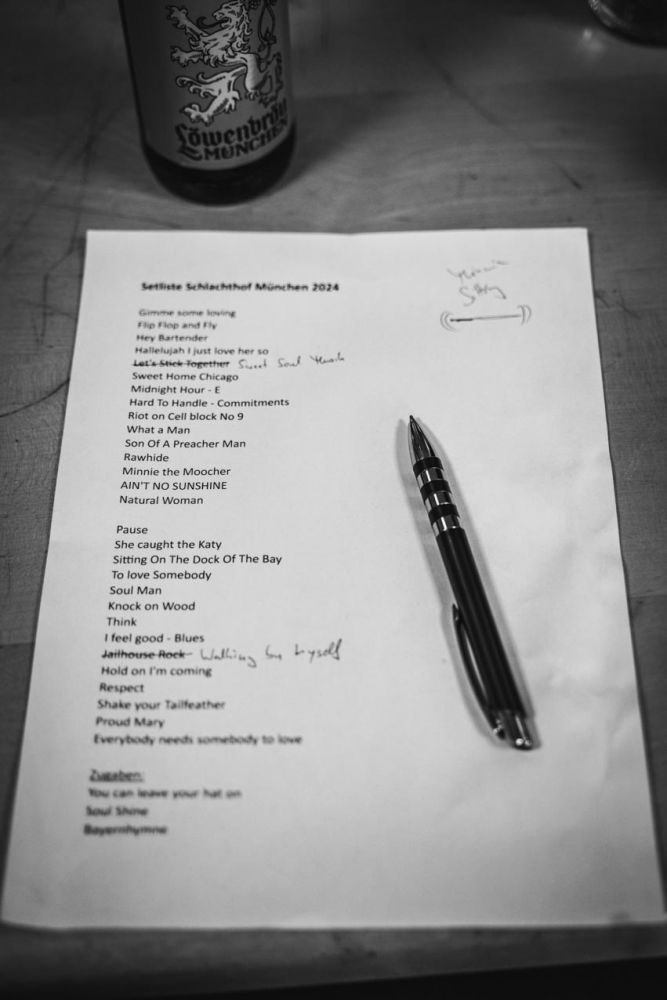 Löwenbräu
MÜNCHEN
Setliste Schlachthof München 2024
Gimme some loving
Flip Flop and Fly
Hey Bartender
Hallelujah I just love her so
Let's Stick Together Sweet Soul
Sweet Home Chicago
Midnight Hour - E
Hard To Handle - Commitments
Riot on Cell block No 9
What a Man
Son Of A Preacher Man
Rawhide
Minnie the Moocher
AIN'T NO SUNSHINE
Natural Woman
Pause
She caught the Katy
Sitting On The Dock Of The Bay
To love Somebody
Soul Man
Knock on Wood
Think
I feel good - Blues
Jailhouse Rock - Walking by myself
Hold on I'm coming
Respect
Shake your Tailfeather
Proud Mary
Everybody needs somebody to love
Zugaben:
You can leave your hat on
Soul Shine
Bayernhymne